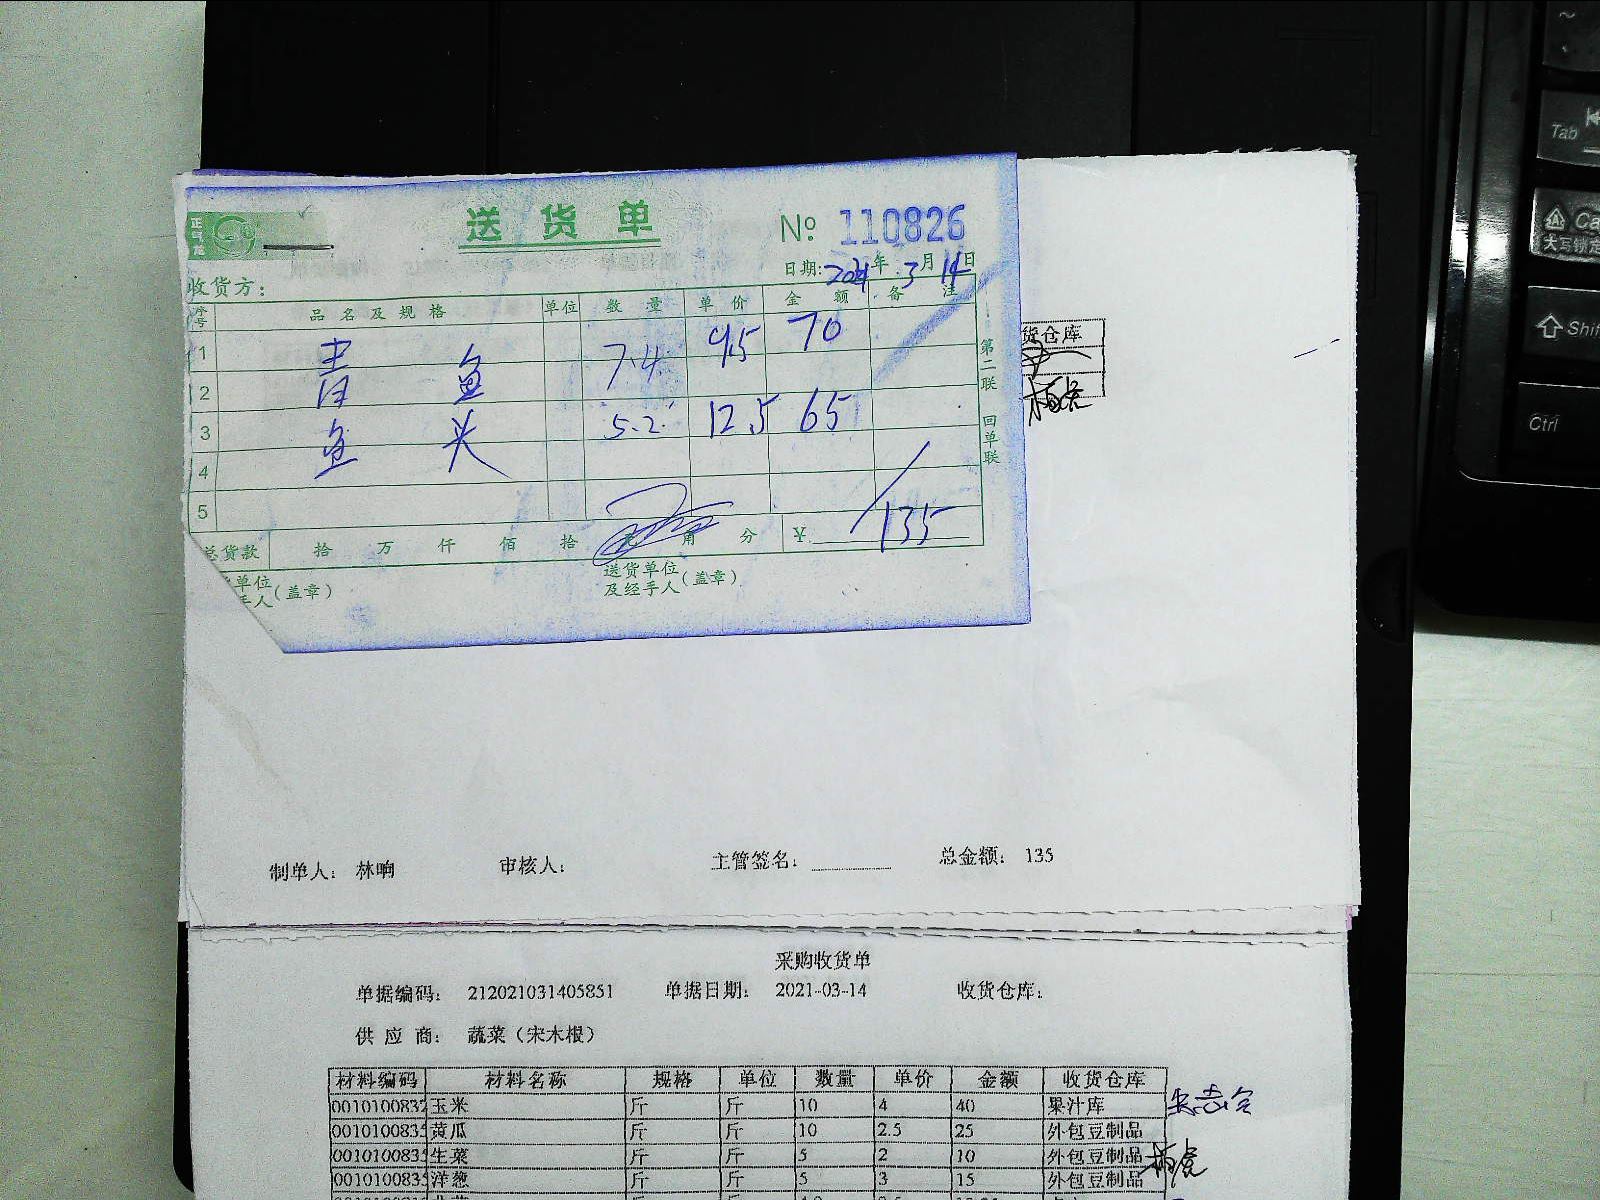 正气龙
送货单
№ 110826
日期: 2021年 3月 14日
收货方：
序号 品名及规格 单位 数量 单价 金额 备注
1 青鱼 7.4 9.5 70
2
3 鱼头 5.2 12.5 65
4
5
总货款 拾 万 仟 佰 拾 元 角 分 ¥ 135
单位
手人(盖章)
送货单位
及经手人(盖章)
第二联 回单联
货仓库
制单人： 林响 审核人： 主管签名： 总金额： 135
采购收货单
单据编码： 212021031405851 单据日期： 2021-03-14 收货仓库：
供应商： 蔬菜（宋木根）
材料编码 材料名称 规格 单位 数量 单价 金额 收货仓库
0010100832 玉米 斤 斤 10 4 40 果汁库
0010100835 黄瓜 斤 斤 10 2.5 25 外包豆制品
0010100835 生菜 斤 斤 5 2 10 外包豆制品
0010100835 洋葱 斤 斤 5 3 15 外包豆制品
Tab
Ca
大写锁定
Shif
Ctrl